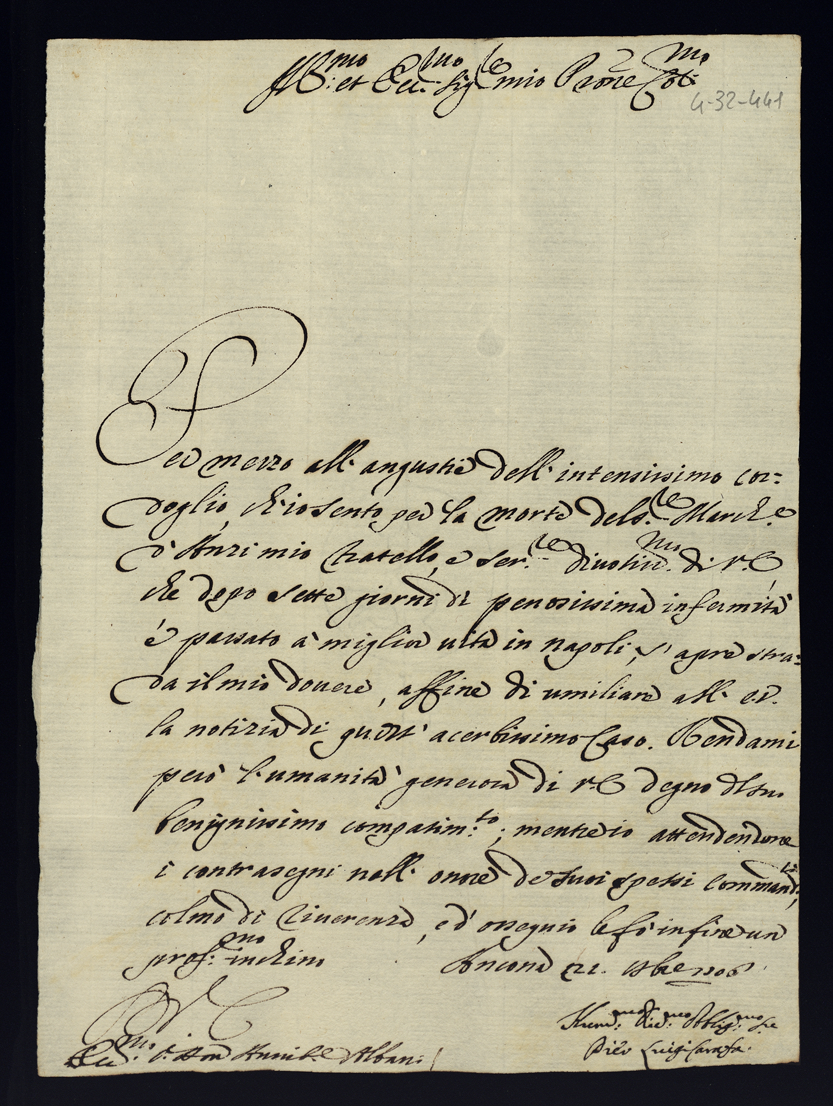 Ill:mo et Ecc:mo Sig:re mio P[ad]rone Col:mo
4-32-441
Per mezzo all' angustie dell' intensissimo cor=
doglio, ch'io sento per la morte del S.re March.e
d'Anzi mio fratello, e ser.re divotiss.mo di V.E.
che dopo sette giorni di penosissima infermità
è passato à miglior vita in napoli, s'apre stra=
da il mio dovere, affine di umiliare all' E.V.
la notizia di quest' acerbissimo Caso. Rendami
però l'umanità generosa di V.E. degno del suo
benignissimo compatim.to; mentre io attendendone
i contrasegni nell' onore de suoi spessi Commandi,
colmo di riverenza, ed' ossequio le fò infine un
prof.mo inchino Ancona 22. 1706
D V E
Ecc.mo S. Don Annib.e Albani
Hum.mo Div.mo Obblig.mo Se.re
Pier Luigi Carafa.